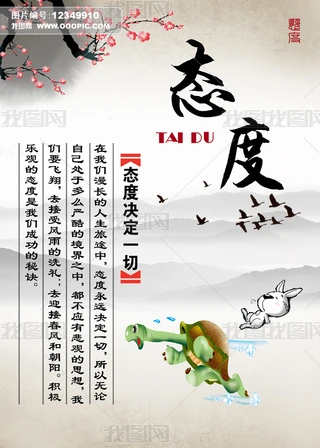 图片编号 12349910
WWW.OOOPIC.COM
态度
TAI DU
【态度决定一切】
在我们漫长的人生旅途中，态度永远决定一切，所以无论
自己处于多么严酷的境界之中，都不应有悲观的思想，我
们要飞翔，去接受风雨的洗礼；去迎接春风和朝阳。积极
乐观的态度是我们成功的秘诀。